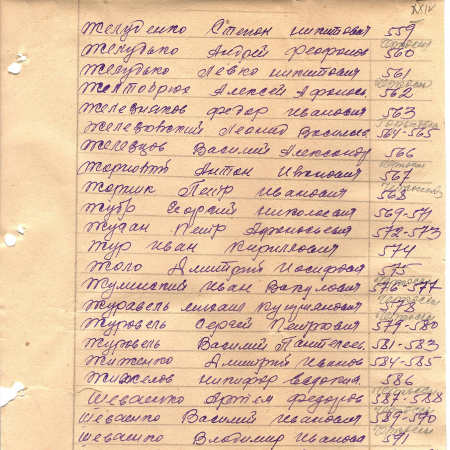 Желуденко Степан Никитович 559
Желудько Андрей Феофанов 560
Желудько Левко Никитович 561
Желтобрюх Алексей Афонас 562
Железняков Федор Иванович 563
Железовский Леонид Василев 564-565
Желевцов Василий Александр 566
Антон Иванович 567
Жорник Петр Иванович 568
Жубр Георгий Николаевич 569-571
Жудан Петр 572-573
Жур Иван Кириллович 574
Жога Дмитрий Иосифович 575
Жулинский Иван Вакулович 576-577
Журавель Михаил 578
Журовель Сергей Петрович 579-580
Журовель Василий Пантелеев 581-583
Жиженко Дмитрий Иванов 584-585
Никифор 586
Шеваенко Артем Федоров 587-588
Шеваенко Василий Иванович 589-590
Шеваенко Владимир Иванова 591